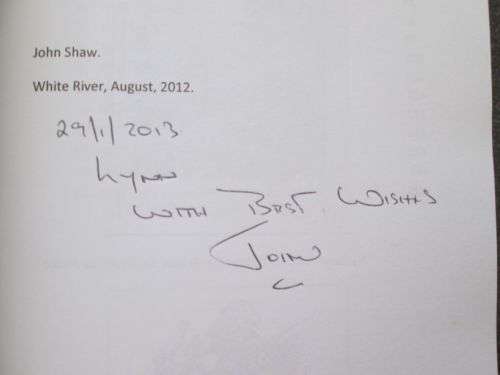 John Shaw.
White River, August, 2012.
29/1/2013
Lynn
WITH BEST WISHES
JOHN